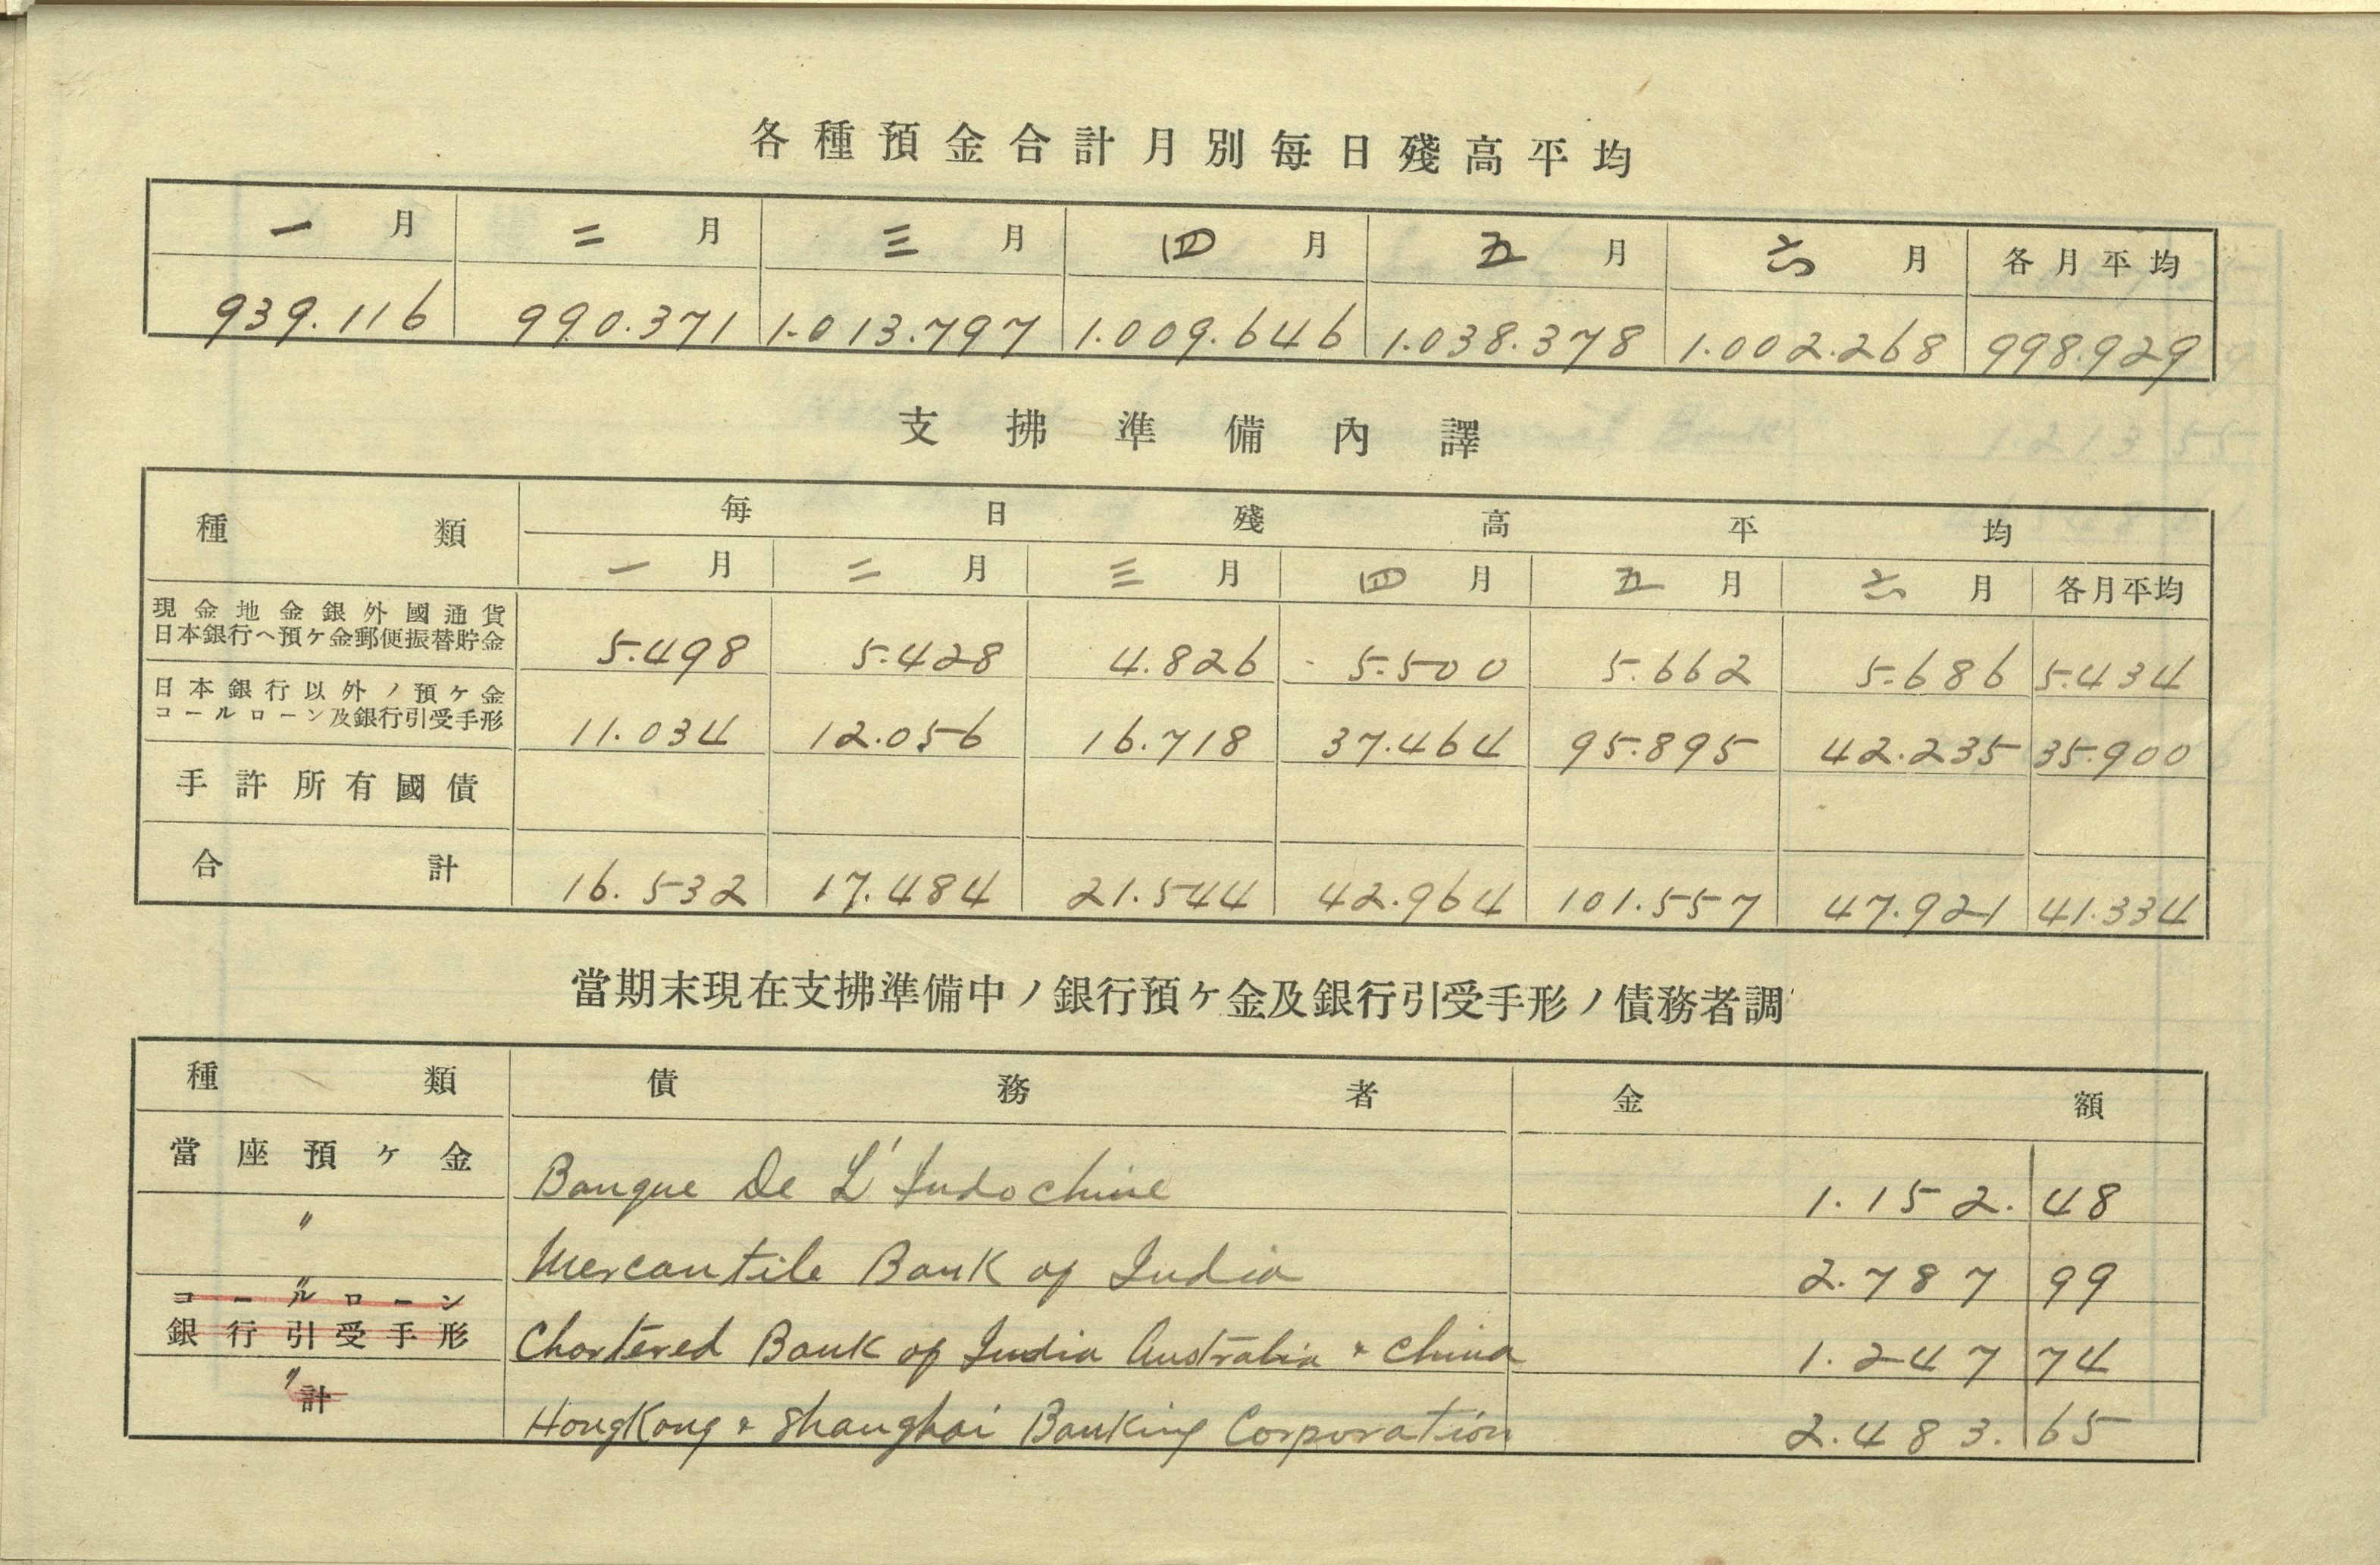 各種預金合計月別每日殘高平均
一月 二月 三月 四月 五月 六月 各月平均
939.116 990.371 1.013.797 1.009.646 1.038.378 1.002.268 998.929
支拂準備內譯
種類 每日殘高平均
一月 二月 三月 四月 五月 六月 各月平均
現金地金銀外國通貨
日本銀行ヘ預ケ金郵便振替貯金 5.498 5.428 4.826 5.500 5.662 5.686 5.434
日本銀行以外ノ預ケ金
コールローン及銀行引受手形 11.034 12.056 16.718 37.464 95.895 42.235 35.900
手許所有國債
合計 16.532 17.484 21.544 42.964 101.557 47.921 41.334
當期末現在支拂準備中ノ銀行預ケ金及銀行引受手形ノ債務者調
種類 債務者 金額
當座預ケ金 Banque De L'Indochine 1.152.48
〃 Mercantile Bank of India 2.787 99
〃
コールローン
銀行引受手形 Chartered Bank of India Australia & China 1.247 74
〃計 HongKong & Shanghai Banking Corporation 2.483.65